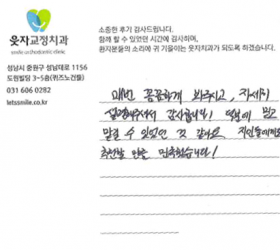 소중한 후기 감사드립니다.
함께 할 수 있었던 시간에 감사하며,
환자분들의 소리에 귀 기울이는 웃자치과가 되도록 하겠습니다.
웃자교정치과
smile orthodontic clinic
성남시 중원구 성남대로 1156
도림빌딩 3~5층(퀴즈노건물)
031 606 0282
letssmile.co.kr
매번 꼼꼼하게 봐주시고, 자세히
설명해주셔서 감사합니다! 덕분에 믿고
맡길 수 있었던 것 같아요. 지인들에게도
추천할 만큼 만족했습니다!